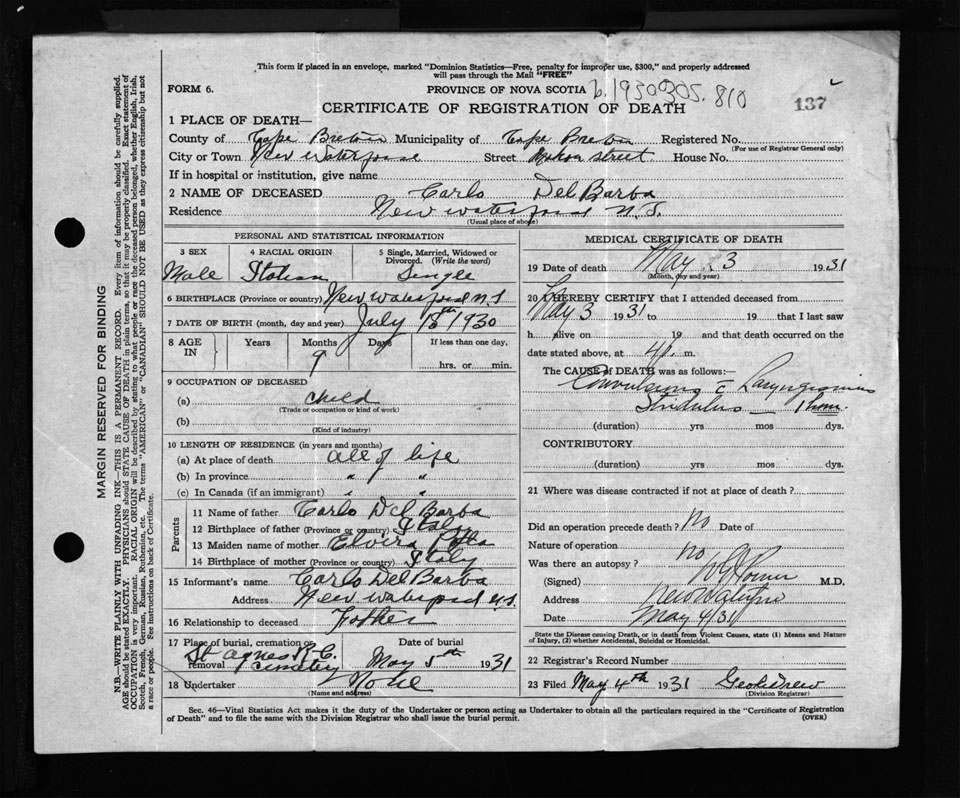 This form if placed in an envelope, marked "Dominion Statistics—Free, penalty for improper use, $300," and properly addressed
will pass through the Mail "FREE"
FORM 6.
PROVINCE OF NOVA SCOTIA
b. 1930 305. 810
CERTIFICATE OF REGISTRATION OF DEATH
137
1 PLACE OF DEATH—
County of Cape Breton Municipality of Cape Breton Registered No.
(For use of Registrar General only)
City or Town New Waterford Street street House No.
If in hospital or institution, give name
2 NAME OF DECEASED Carlo Del Barba
Residence New Waterford N.S.
(Usual place of abode)
PERSONAL AND STATISTICAL INFORMATION
3 SEX 4 RACIAL ORIGIN 5 Single, Married, Widowed or
Divorced. (Write the word)
Male Italian Single
6 BIRTHPLACE (Province or country) New Waterford N.S
7 DATE OF BIRTH (month, day and year) July 18th 1930
8 AGE IN Years Months Days If less than one day,
9
hrs. or min.
9 OCCUPATION OF DECEASED
(a) child
(Trade or occupation or kind of work)
(b)
(Kind of industry)
10 LENGTH OF RESIDENCE (in years and months)
(a) At place of death all of life
(b) In province " "
(c) In Canada (if an immigrant) " "
Parents
11 Name of father Carlo Del Barba
12 Birthplace of father (Province or country) Italy
13 Maiden name of mother Elvira
14 Birthplace of mother (Province or country) Italy
15 Informant's name Carlo Del Barba
Address New Waterford N.S.
16 Relationship to deceased Father
17 Place of burial, cremation or removal Date of burial
St Agnes R.C. cemetery May 5th 1931
18 Undertaker None
(Name and address)
MEDICAL CERTIFICATE OF DEATH
19 Date of death May 3 1931
(Month, day and year)
20 I HEREBY CERTIFY that I attended deceased from
May 3 1931 to 19 that I last saw
h alive on 19 and that death occurred on
date stated above, at 4 p. m.
The CAUSE of DEATH was as follows:—
Convulsions c̄ Laryngismus
Stridulus — 1 hour.
(duration) yrs mos dys.
CONTRIBUTORY
(duration) yrs mos dys.
21 Where was disease contracted if not at place of death?
Did an operation precede death? No Date of
Nature of operation
Was there an autopsy? no
(Signed) M.D.
Address New Waterford
Date May 4/31
State the Disease causing Death, or in death from Violent Causes, state (1) Means and Nature
of Injury, (2) whether Accidental, Suicidal or Homicidal.
22 Registrar's Record Number
23 Filed May 4th 1931 Geo Drew
(Division Registrar)
Sec. 46—Vital Statistics Act makes it the duty of the Undertaker or person acting as Undertaker to obtain all the particulars required in the "Certificate of Registration
of Death" and to file the same with the Division Registrar who shall issue the burial permit.
(OVER)
MARGIN RESERVED FOR BINDING
N.B.—WRITE PLAINLY WITH UNFADING INK—THIS IS A PERMANENT RECORD. Every item of information should be carefully supplied.
AGE should be stated EXACTLY. PHYSICIANS should STATE CAUSE OF DEATH in plain terms, so that it may be properly classified. Exact statement of
OCCUPATION is very important. RACIAL ORIGIN will be described by stating to what people or race the deceased person belonged, whether English, Irish,
Scotch, French, German, Russian, Ruthenian, etc. The terms "AMERICAN" or "CANADIAN" SHOULD NOT BE USED as they express citizenship but not
a race or people. See instructions on back of Certificate.